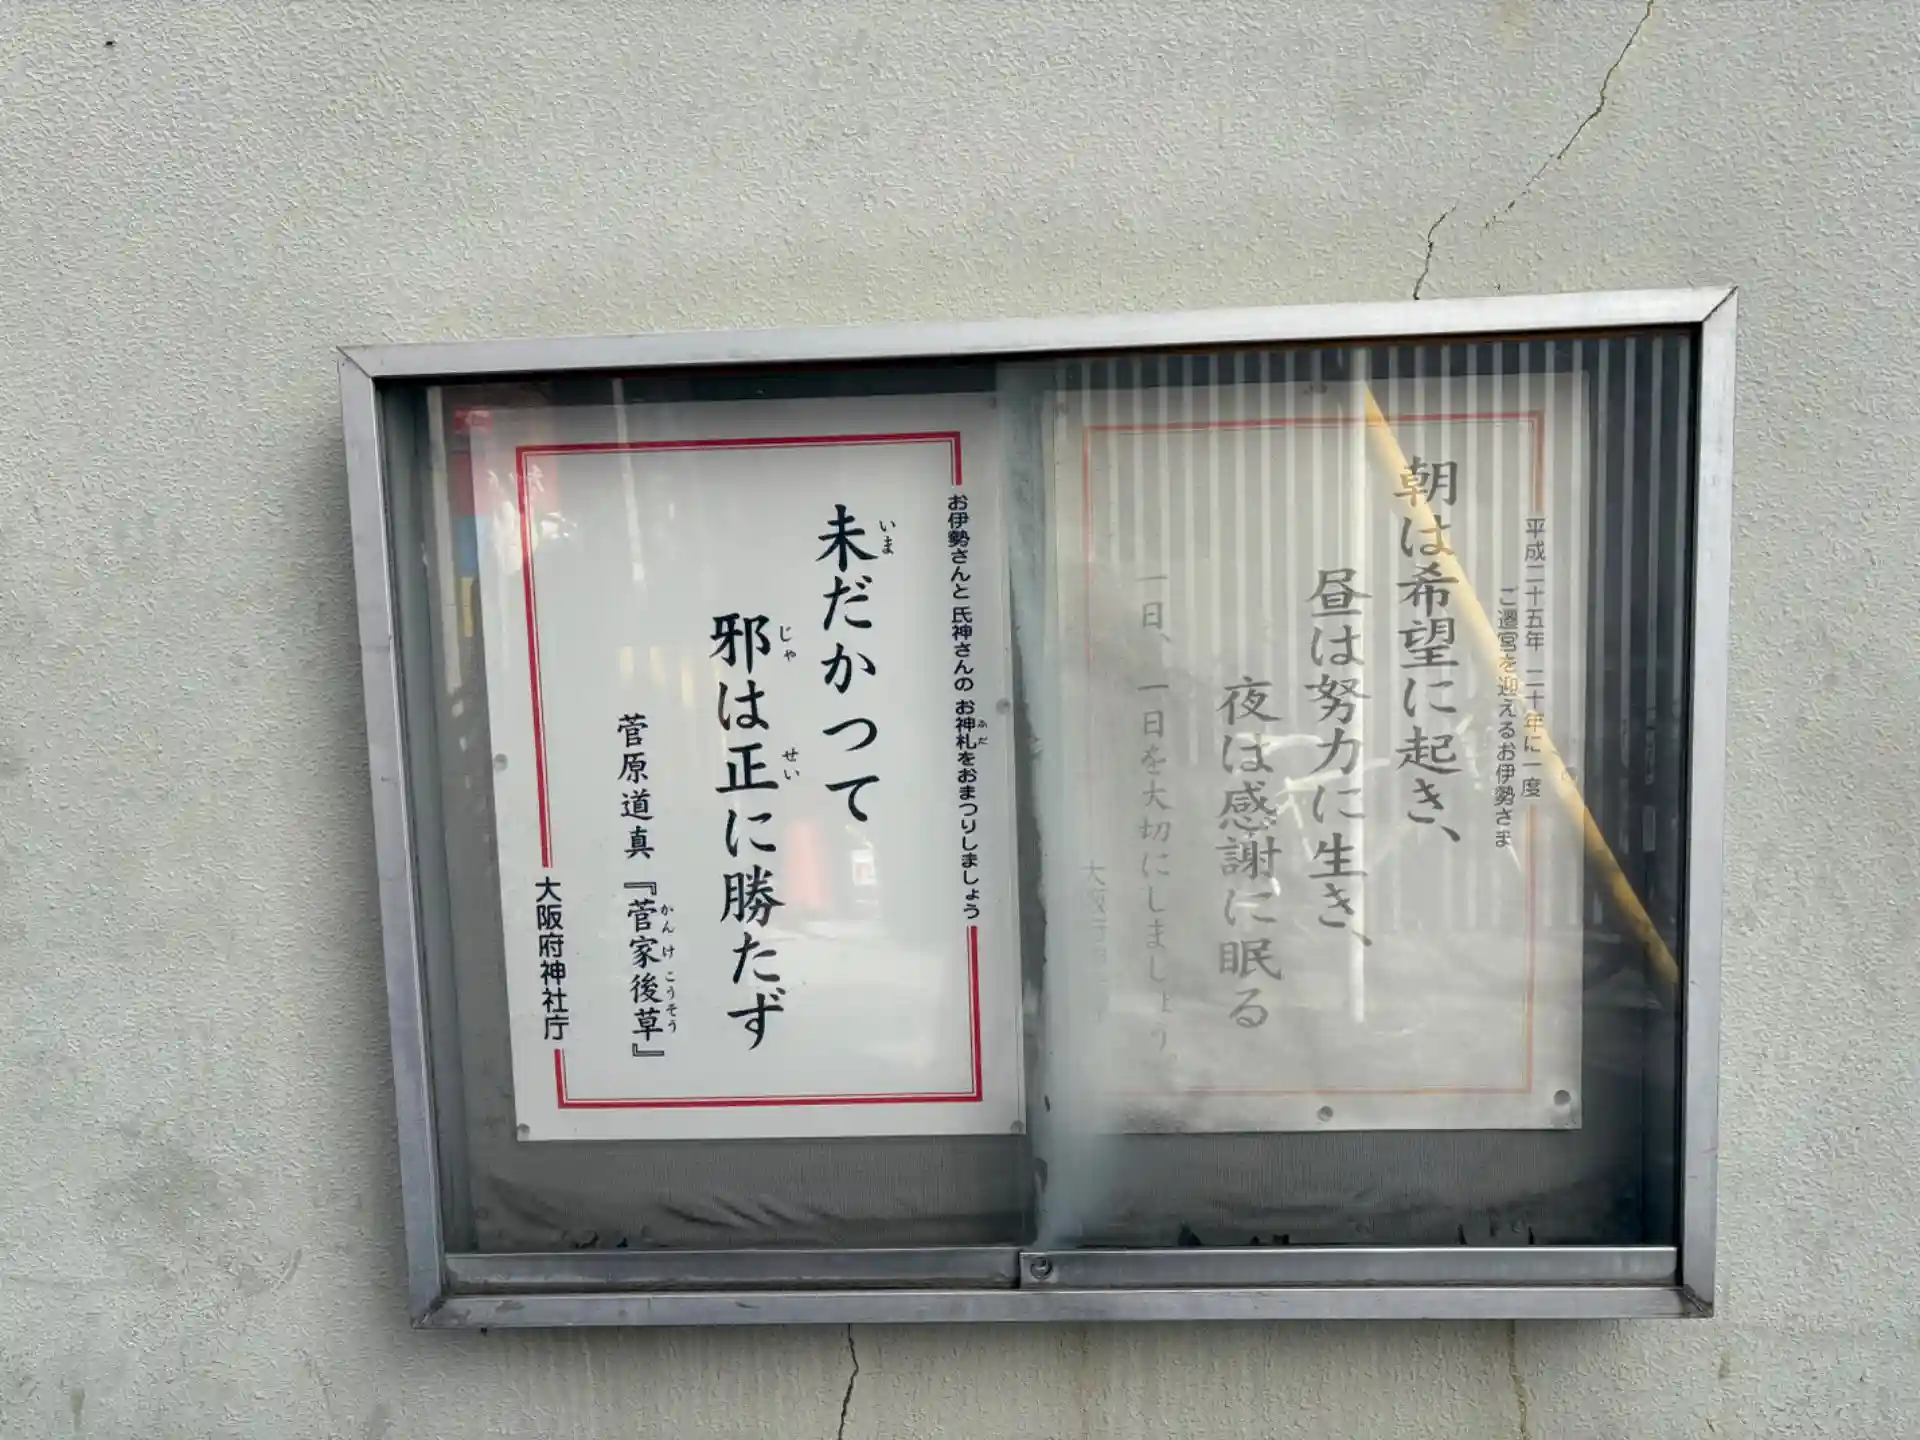 平成二十五年 二十年に一度
ご遷宮を迎えるお伊勢さま
朝は希望に起き、
昼は努力に生き、
夜は感謝に眠る
一日、一日を大切にしましょう
お伊勢さんと 氏神さんの お神札をおまつりしましょう
ふだ
未だかつて
いま
邪は正に勝たず
じゃ
せい
菅原道真『菅家後草』
かんけ こうそう
大阪府神社庁